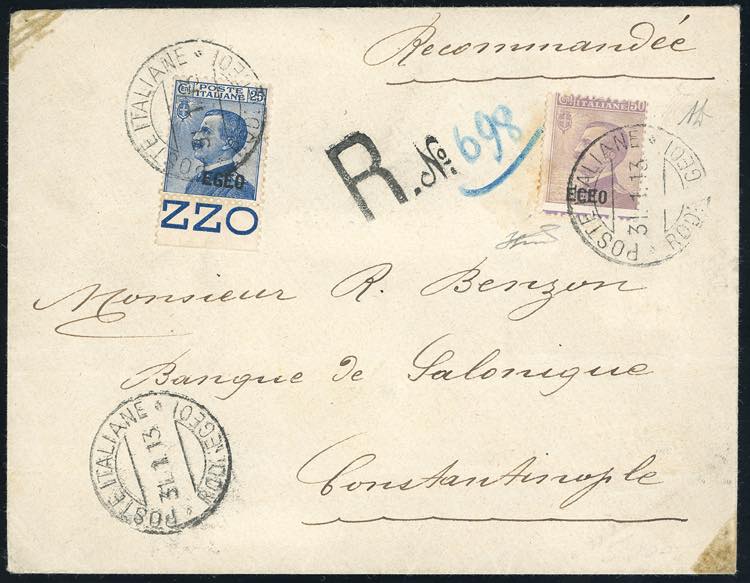 Recommandée
POSTE ITALIANE 25
EGEO
ZZO
R. No. 698
ITALIANE 50
EGEO
POSTE ITALIANE * RODI (EGEO)
31.1.13.
Monsieur R. Benzon
Banque de Salonique
Constantinople
POSTE ITALIANE * RODI (EGEO) *
31.1.13.